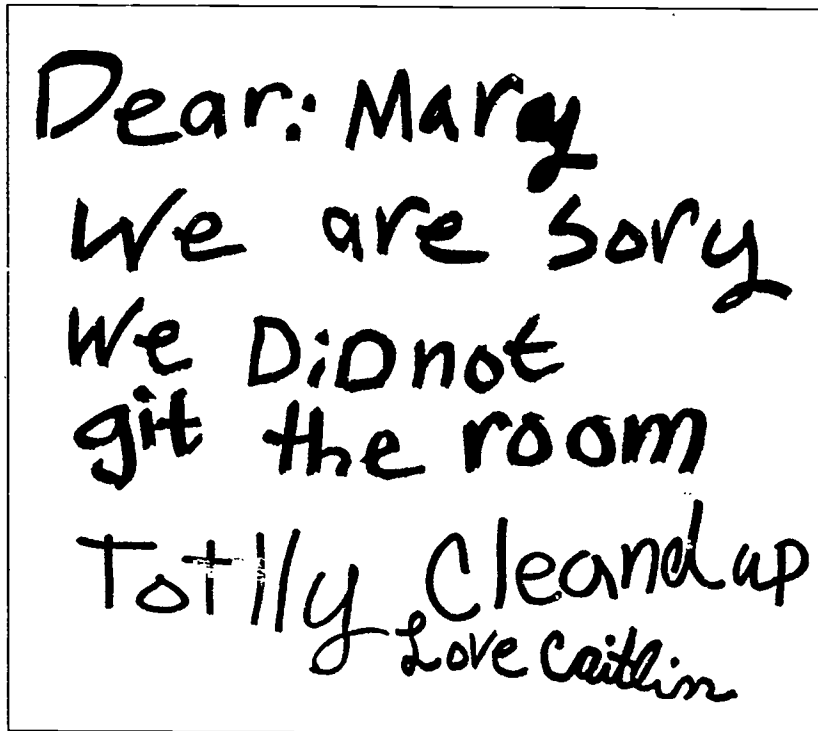 Dear: Mary
We are sory
We DiD not
git the room
Totlly Cleand up
Love Caitlin